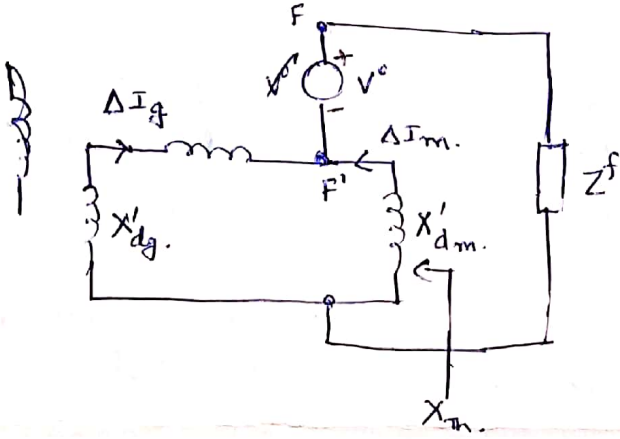 F
+
V°
-
ΔI_g
ΔI_m.
F'
Z^f
X'_dg.
X'_dm.
X_Th.